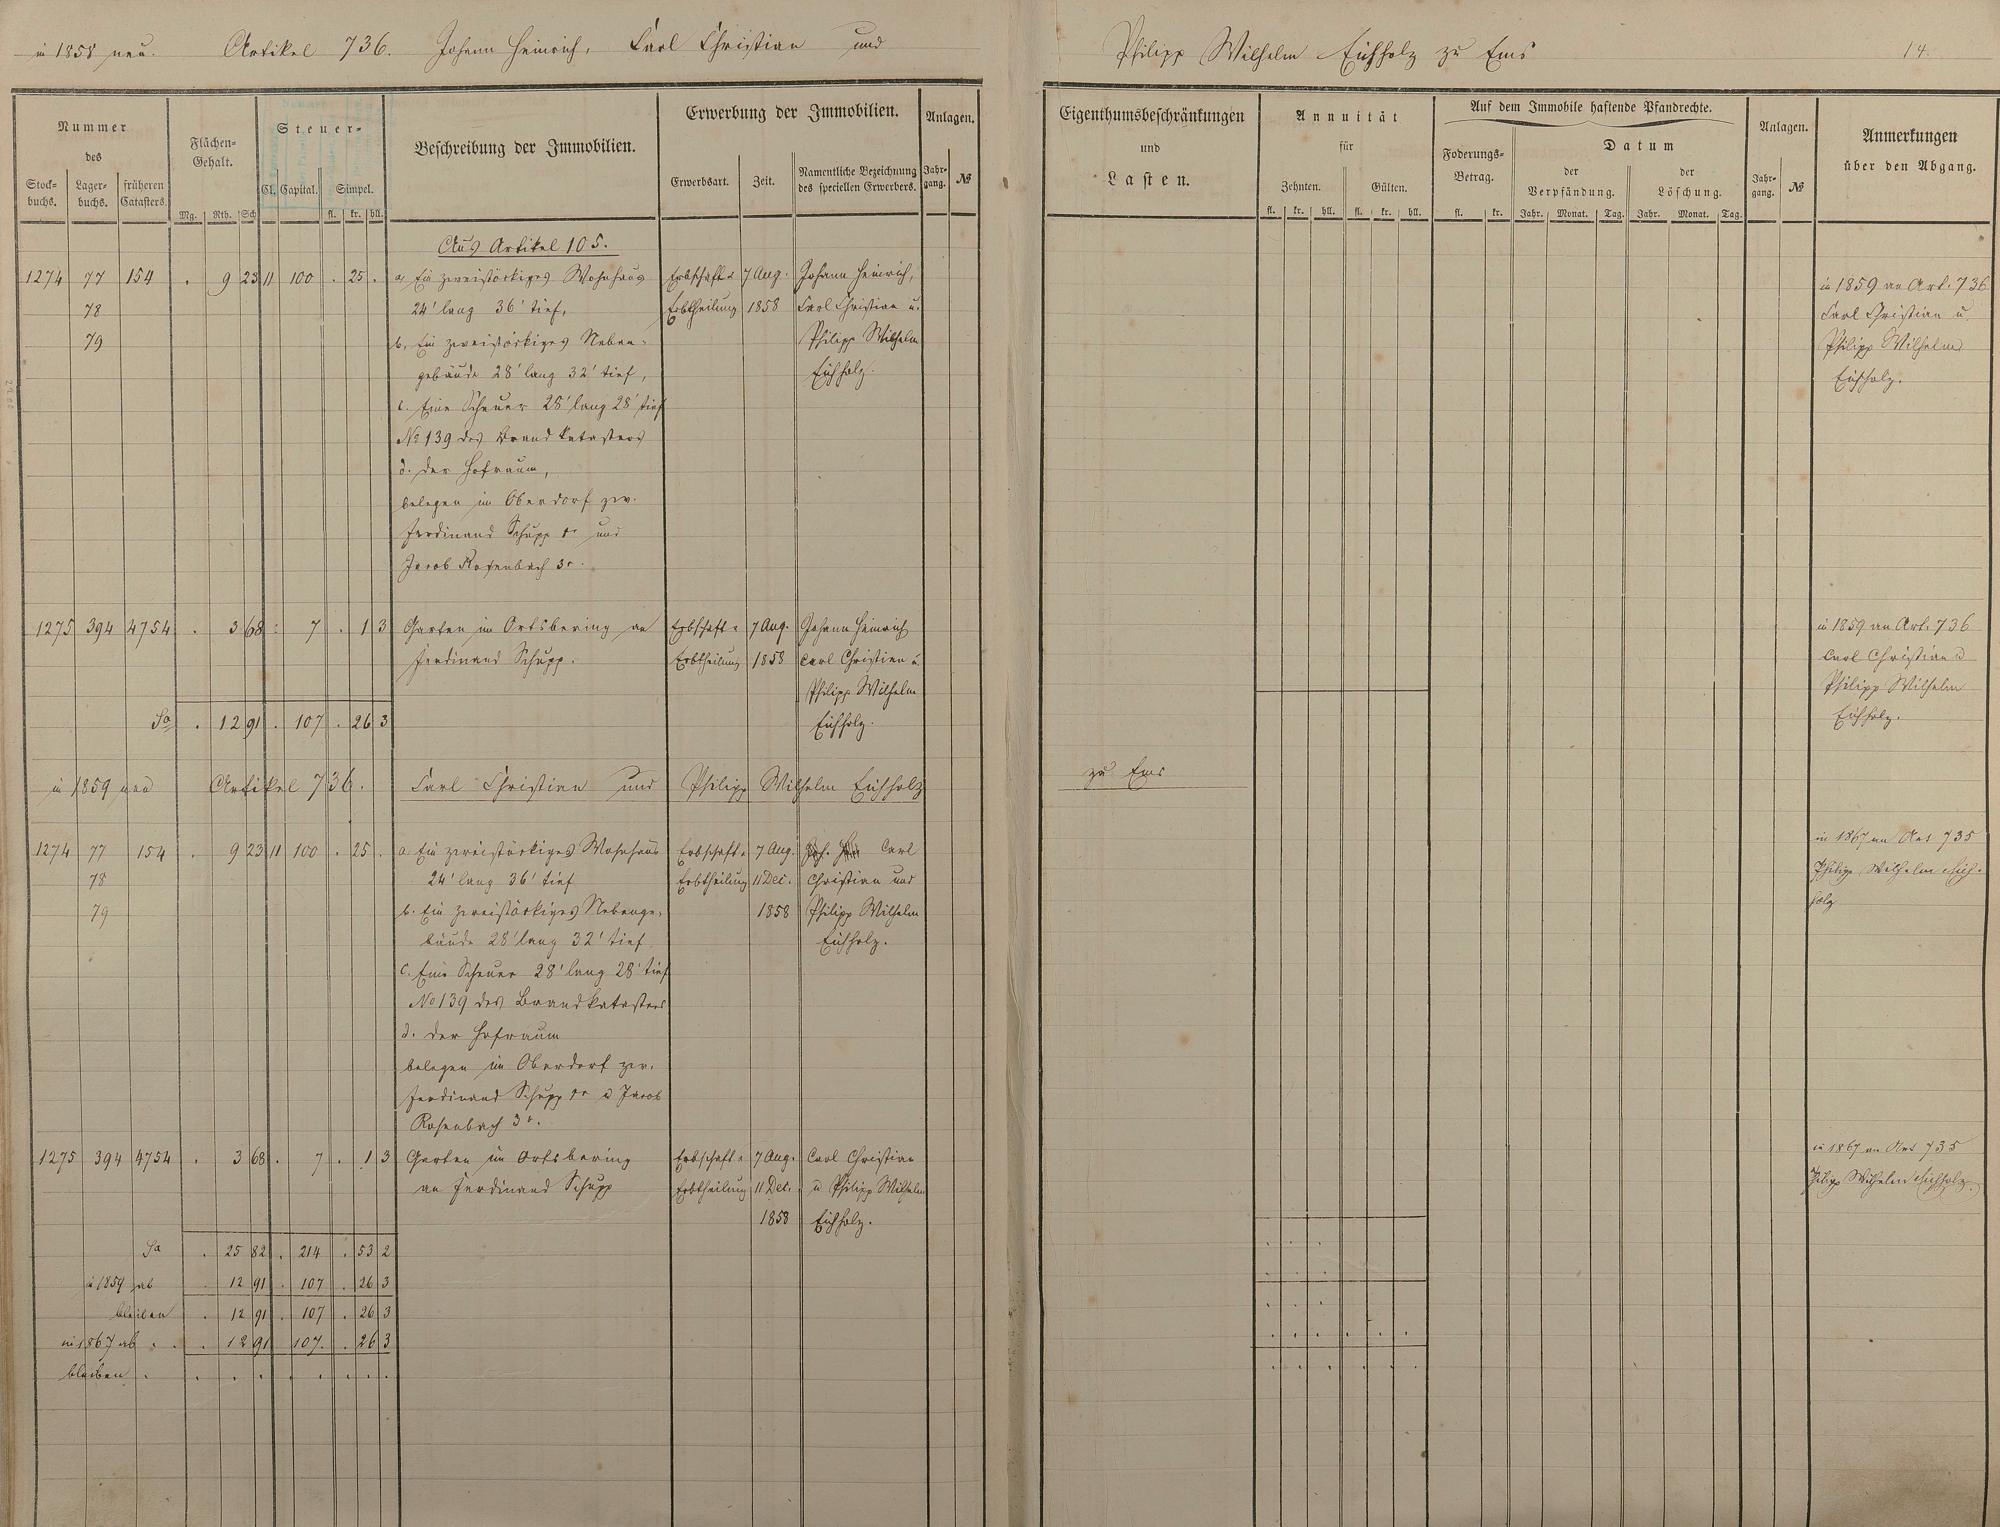 in 1858 neu. Artikel 736. Johann Heinrich, Carl Christian und Philipp Wilhelm Eichholz zu Ems 14.
Nummer
des
Stock-
buchs.
Lager-
buchs.
früheren
Catasters.
Flächen-
Gehalt.
Mg. Rth. Sch
Steuer-
Cl. Capital. Simpel.
fl. kr. hll.
Beschreibung der Immobilien.
Erwerbung der Immobilien.
Erwerbsart. Zeit.
Namentliche Bezeichnung
des speciellen Erwerbers.
Anlagen.
Jahr-
gang. №
Eigenthumsbeschränkungen
und
Lasten.
Annuität
für
Zehnten. Gülten.
fl. kr. hll. fl. kr. hll.
Auf dem Immobile haftende Pfandrechte.
Foderungs-
Betrag.
fl. kr.
Datum
der
Verpfändung.
der
Löschung.
Jahr. Monat. Tag. Jahr. Monat. Tag.
Anlagen.
Jahr-
gang. №
Anmerkungen
über den Abgang.
Aus Artikel 105.
1274 77 154 . 9 23 11 100 . 25 . a, Ein zweistöckiges Wohnhaus Erbschaft u 7 Aug. Johann Heinrich,
78 24' lang 36' tief, Erbtheilung 1858 Carl Christian u.
79 b, Ein zweistöckiges Neben- Philipp Wilhelm
gebäude 28' lang 32' tief, Eichholz.
c. Eine Scheuer 28' lang 28' tief
No 139 des Brandkatasters
d. der Hofraum,
belegen im Oberdorf zw.
Ferdinand Schupp und
Jacob Rosenbach 3r.
in 1859 an Art. 736
Carl Christian u.
Philipp Wilhelm
Eichholz.
1275 394 4754 . 3 68 : 7 . 1 3 Garten im Ortsbering an Erbschaft u 7 Aug. Johann Heinrich
Ferdinand Schupp. Erbtheilung 1858 Carl Christian u.
Philipp Wilhelm
Sa . 12 91 . 107 . 26 3 Eichholz.
in 1859 an Art. 736
Carl Christian u
Philipp Wilhelm
Eichholz.
in 1859 neu Artikel 736. Carl Christian und Philipp Wilhelm Eichholz zu Ems
1274 77 154 . 9 23 11 100 . 25 . a Ein zweistöckiges Wohnhaus Erbschaft u 7 Aug. Carl
78 24' lang 36' tief Erbtheilung 11 Dec. Christian und
79 b. Ein zweistöckiges Nebenge- 1858 Philipp Wilhelm
bäude 28' lang 32' tief Eichholz.
c. Eine Scheuer 28' lang 28' tief
No 139 des Brandkatasters
d. der Hofraum
belegen im Oberdorf zw.
Ferdinand Schupp u Jacob
Rosenbach 3r.
in 1867 an Art 735
Philipp Wilhelm Eich-
holz
1275 394 4754 . 3 68 . 7 . 1 3 Garten im Ortsbering Erbschaft u 7 Aug. Carl Christian
an Ferdinand Schupp Erbtheilung 11 Dec. u Philipp Wilhelm
1858 Eichholz.
in 1867 an Art 735
Philipp Wilhelm Eichholz.
Sa . 25 82 . 214 . 53 2
in 1859 ab . 12 91 . 107 . 26 3
bleiben . 12 91 . 107 . 26 3
in 1867 ab . . . 12 91 107. . 26 3
bleiben . . . . . . . . .